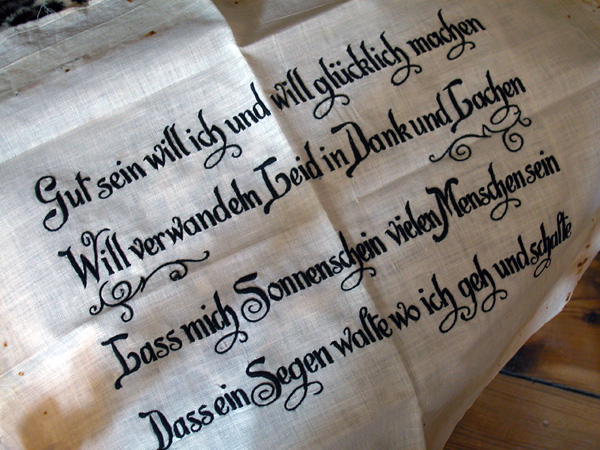 Gut sein will ich und will glücklich machen
Will verwandeln Leid in Dank und Lachen
Lass mich Sonnenschein vielen Menschen sein
Dass ein Segen walte wo ich geh und schalte